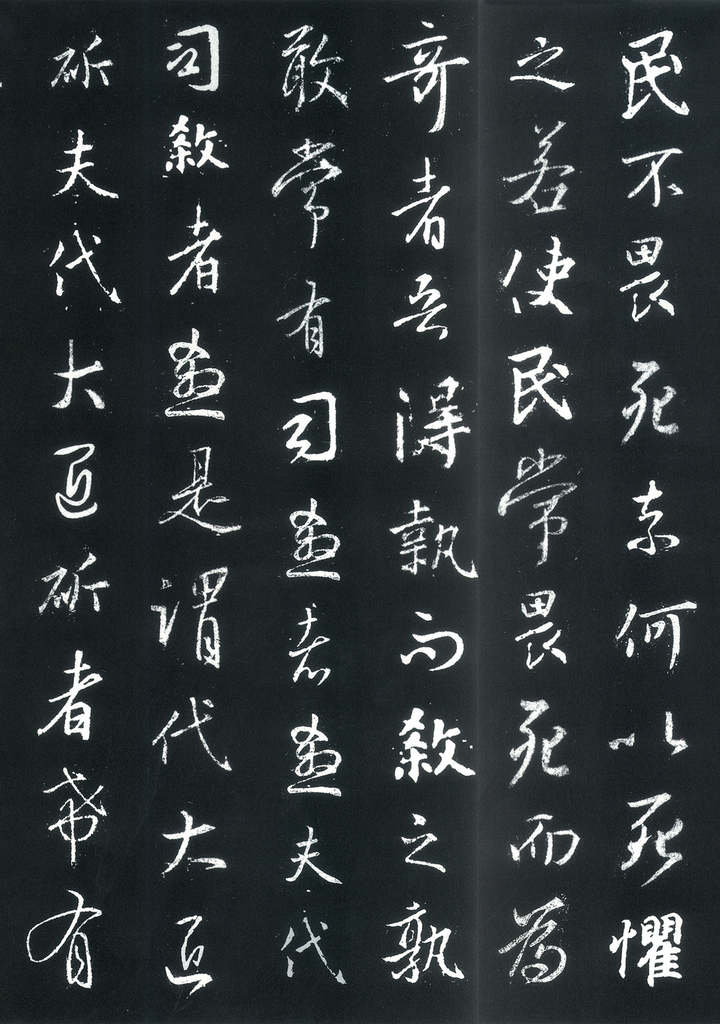 民不畏死奈何以死懼
之若使民常畏死而為
奇者吾得執而殺之孰
敢常有司煞者煞夫代
司殺者煞是謂代大匠
斫夫代大匠斫者希有